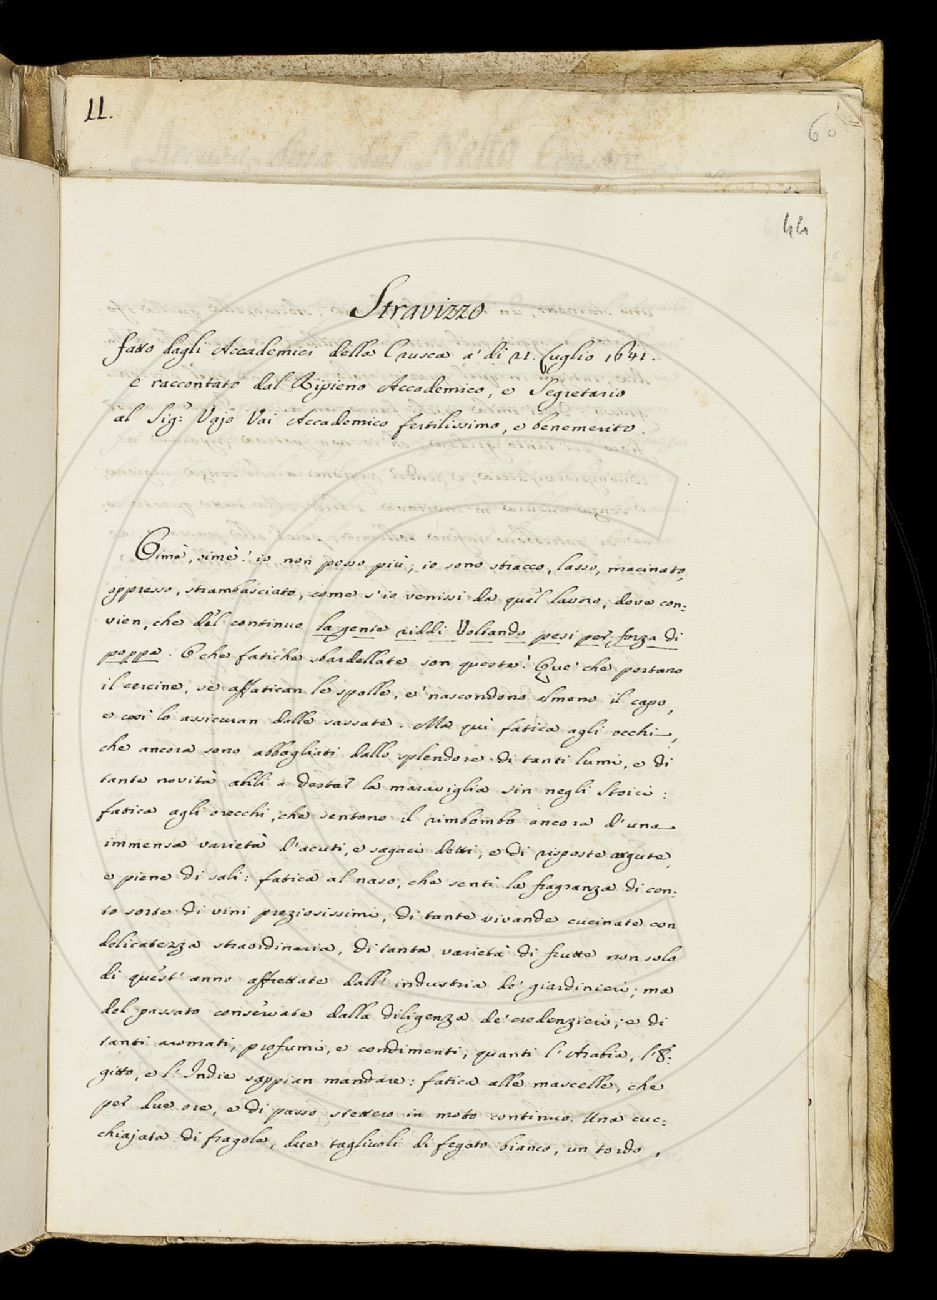 11.
60
44
Stravizzo
fatto dagli Accademici della Crusca a' di 21. Luglio 1641.
e raccontato dal Ripieno Accademico, e Segretario
al Sig.r Vajo Vai Accademico fertilissimo, e benemerito.
Oimè, oimè! io non posso più; io sono stracco, lasso, macinato,
oppresso, strambasciato, come s'io venissi da quel lavoro, dove con:
vien, che dal continuo la gente riddi Voltando pesi per forza di
poppa. O che fatiche sbardellate son queste. Que' che portano
il cercine, se affatican le spalle, e' nascondono almeno il capo,
e così lo assicuran dalle sassate. Ma quì fatica agli occhi,
che ancora sono abbagliati dallo splendore di tanti lumi, e di
tante novità abili a destar la maraviglia sin negli Stoici:
fatica agli orecchi, che sentono il rimbombo ancora d'una
immensa varietà d'acuti, e sagaci detti, e di risposte argute,
e piene di sali: fatica al naso, che sentì la fragranza di cen:
to sorte di vini preziosissimi, di tante vivande cucinate con
delicatezza straordinaria, di tanta varietà di frutte non solo
di quest' anno affrettate dall' industria de' giardinieri; ma
del passato conservate dalla diligenza de' credenzieri; e di
tanti aromati, profumi, e condimenti, quanti l'Arabia, l'E:
gitto, e l'Indie sappian mandare: fatica alle mascelle, che
per due ore, e di passo stettero in moto continuo. Una cuc:
chiajata di fragole, due tagliuoli di fegato bianco, un tordo,